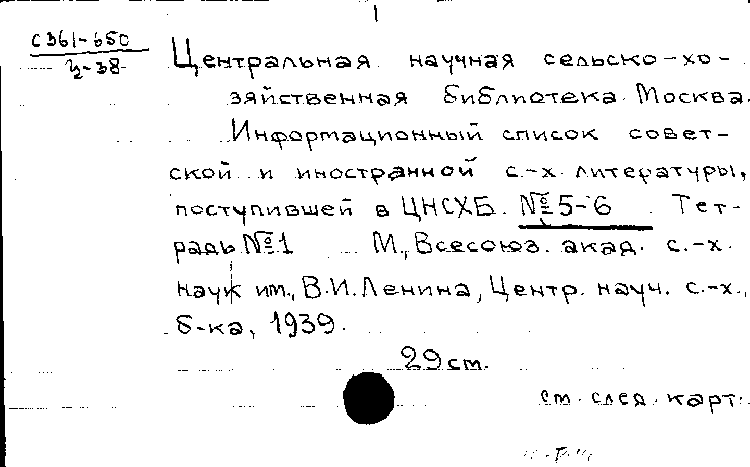 С361-650
Ц-38
Центральная научная сельско-хо-
зяйственная библиотека. Москва.
Информационный список совет-
ской и иностранной с.-х. литературы,
поступившей в ЦНСХБ. №5-6. Тет-
радь №1 М., Всесоюз. акад. с.-х.
наук им., В.И.Ленина, Центр. науч. с.-х.,
б-ка, 1939.
29 см.
см. след. карт.